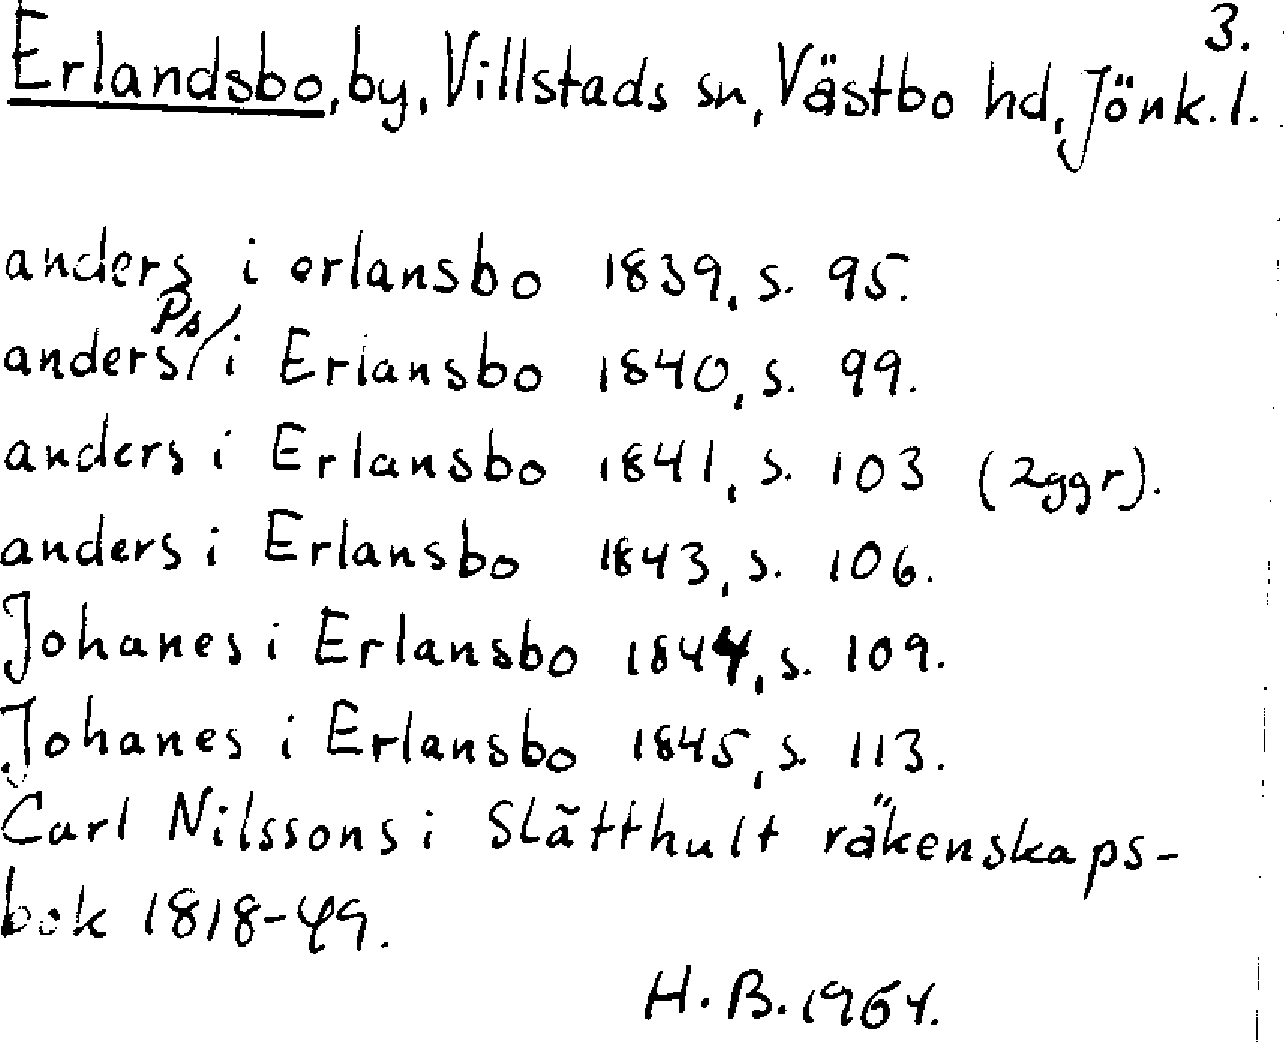 3.
Erlandsbo, by, Villstads sn, Västbo hd, Jönk. l.
anders i erlansbo 1839, s. 95.
anders Ps/ i Erlansbo 1840, s. 99.
anders i Erlansbo 1841, s. 103 (2ggr).
anders i Erlansbo 1843, s. 106.
Johanes i Erlansbo 1844, s. 109.
Johanes i Erlansbo 1845, s. 113.
Carl Nilssons i Slätthult räkenskaps-
bok 1818-49.
H. B. 1964.